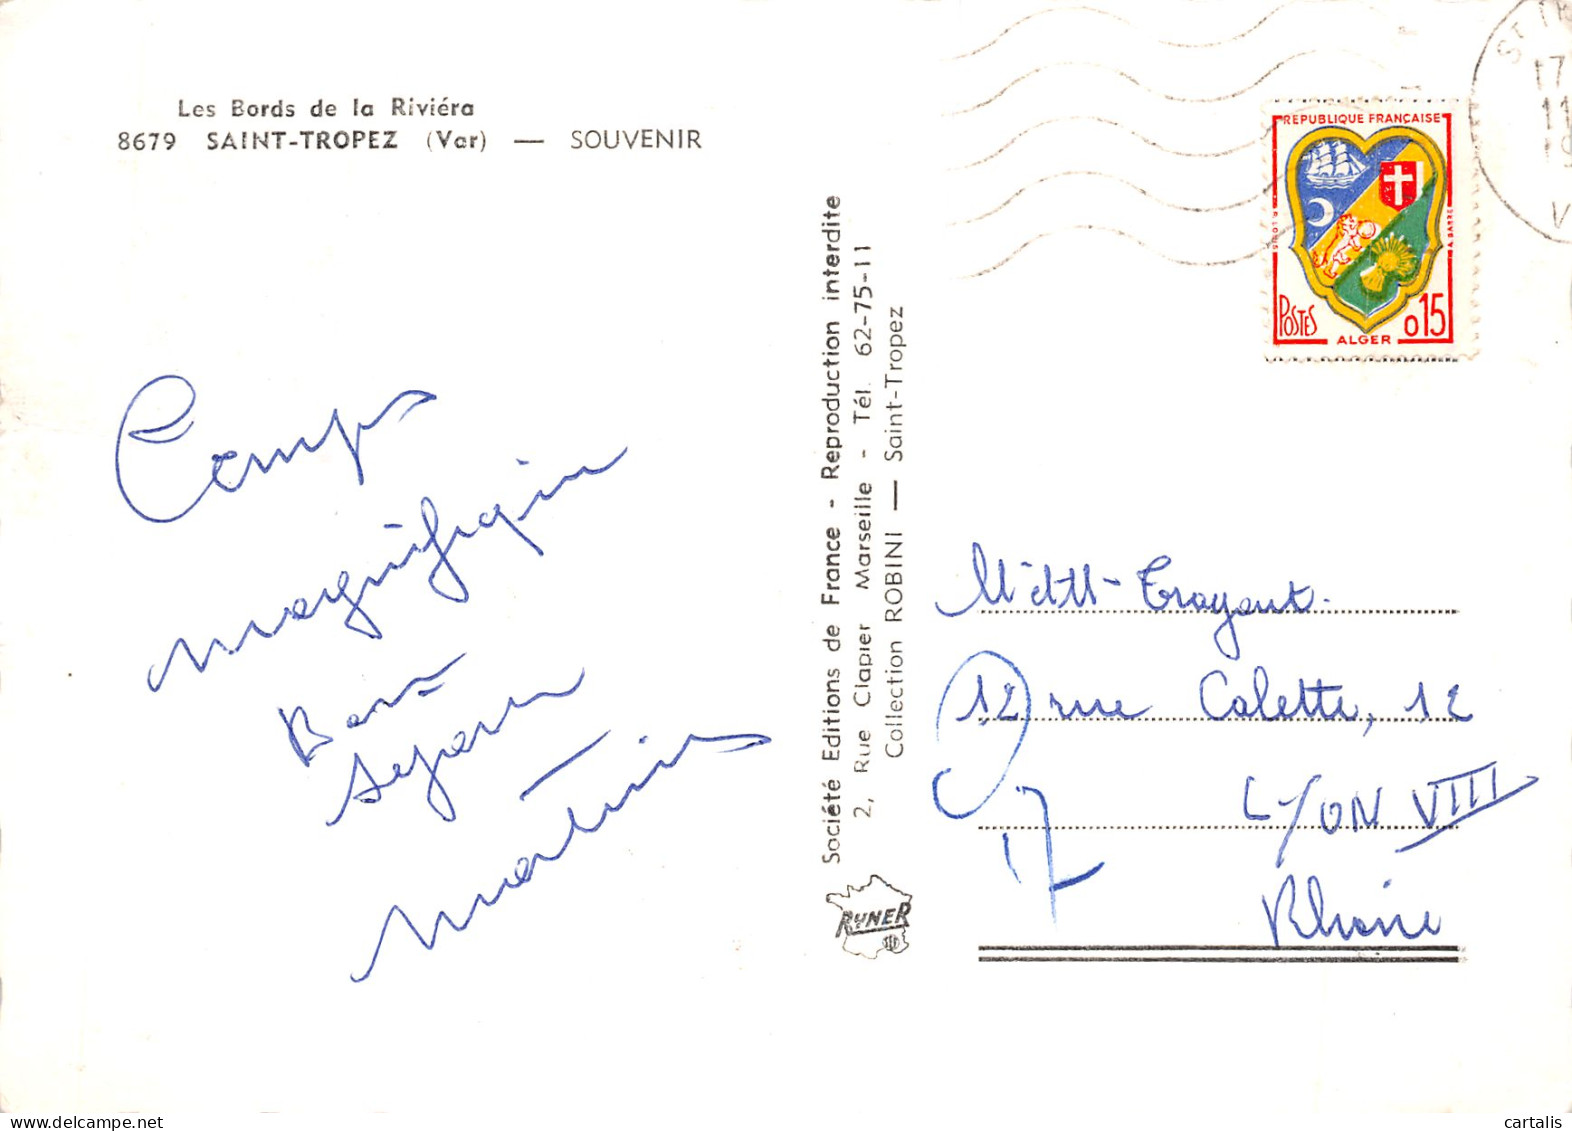 Les Bords de la Riviéra
8679 SAINT-TROPEZ (Var) — SOUVENIR
Temps
magnifique
Bon
séjour
Société Editions de France - Reproduction interdite
2, Rue Clapier Marseille - Tél. 62-75-11
Collection ROBINI — Saint-Tropez
RYNER
ST TR
17
11
19
V
REPUBLIQUE FRANÇAISE
POSTES
0,15
ALGER
M et M
12 rue Colette, 12
LYON VIII
Rhône
17
cartalis